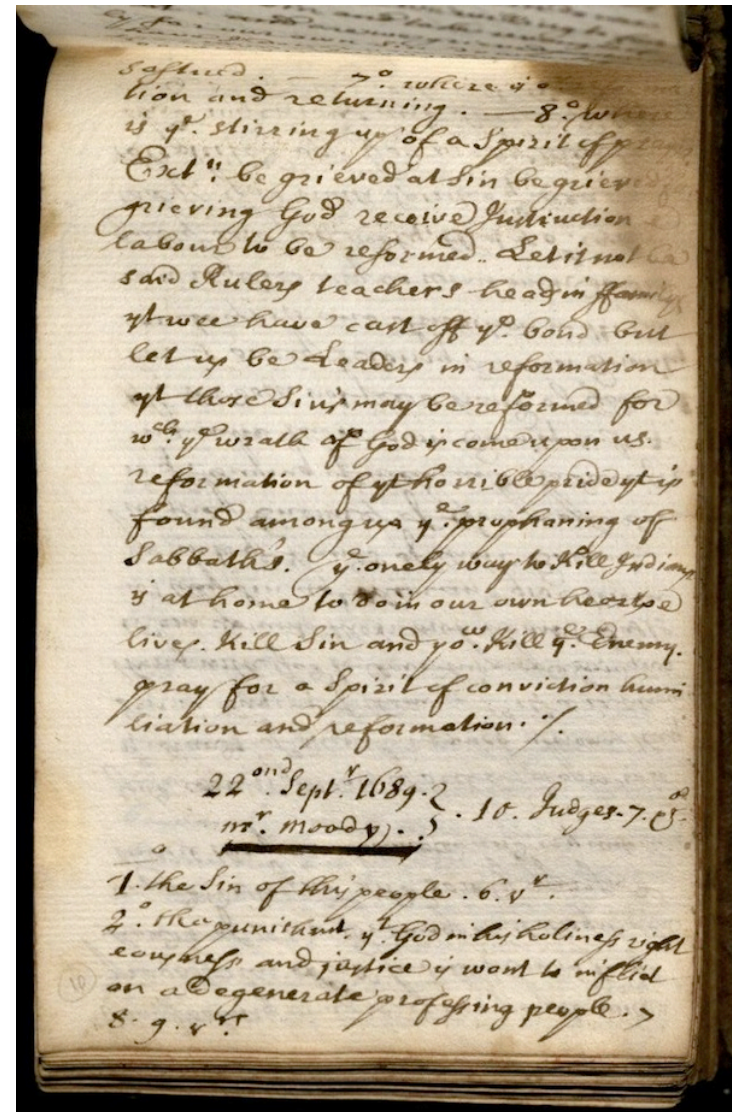 softned. — 7.º where
tion and returning. — 8.º where
is yᵉ. stirring up of a Spirit of
Extⁿ: be grieved at Sin be grieved for
grieving God receive Instruction &
labour to be reformed.. Let it not be
said Rulers teachers head in ffamilys
yt wee have cast off yᵉ. bond but
let us be Leaders in reformation
yt those Sins may be reformed for
wᶜʰ. yᵉ wrath of God is come upon us.
reformation of yt horrible pride yt is
found among us yᵉ. prophaning of
Sabbaths. yᵉ. onely way to Kill Indians
is at home to do in our own hearts &
lives. Kill Sin and yoᵘ. Kill yᵉ. Enemy.
pray for a Spirit of conviction humi
liation and reformation. ·/.
22ᵒⁿᵈ. Septʳ. 1689.
mʳ. Moody. } . 10. Judges. 7. &
1.º the Sin of this people . 6. vʳ.
2.º the punishmt. yᵗ. God in his holiness right
eousness and justice is wont to inflict
on a degenerate professing people. 7
8. 9. vʳˢ.
10